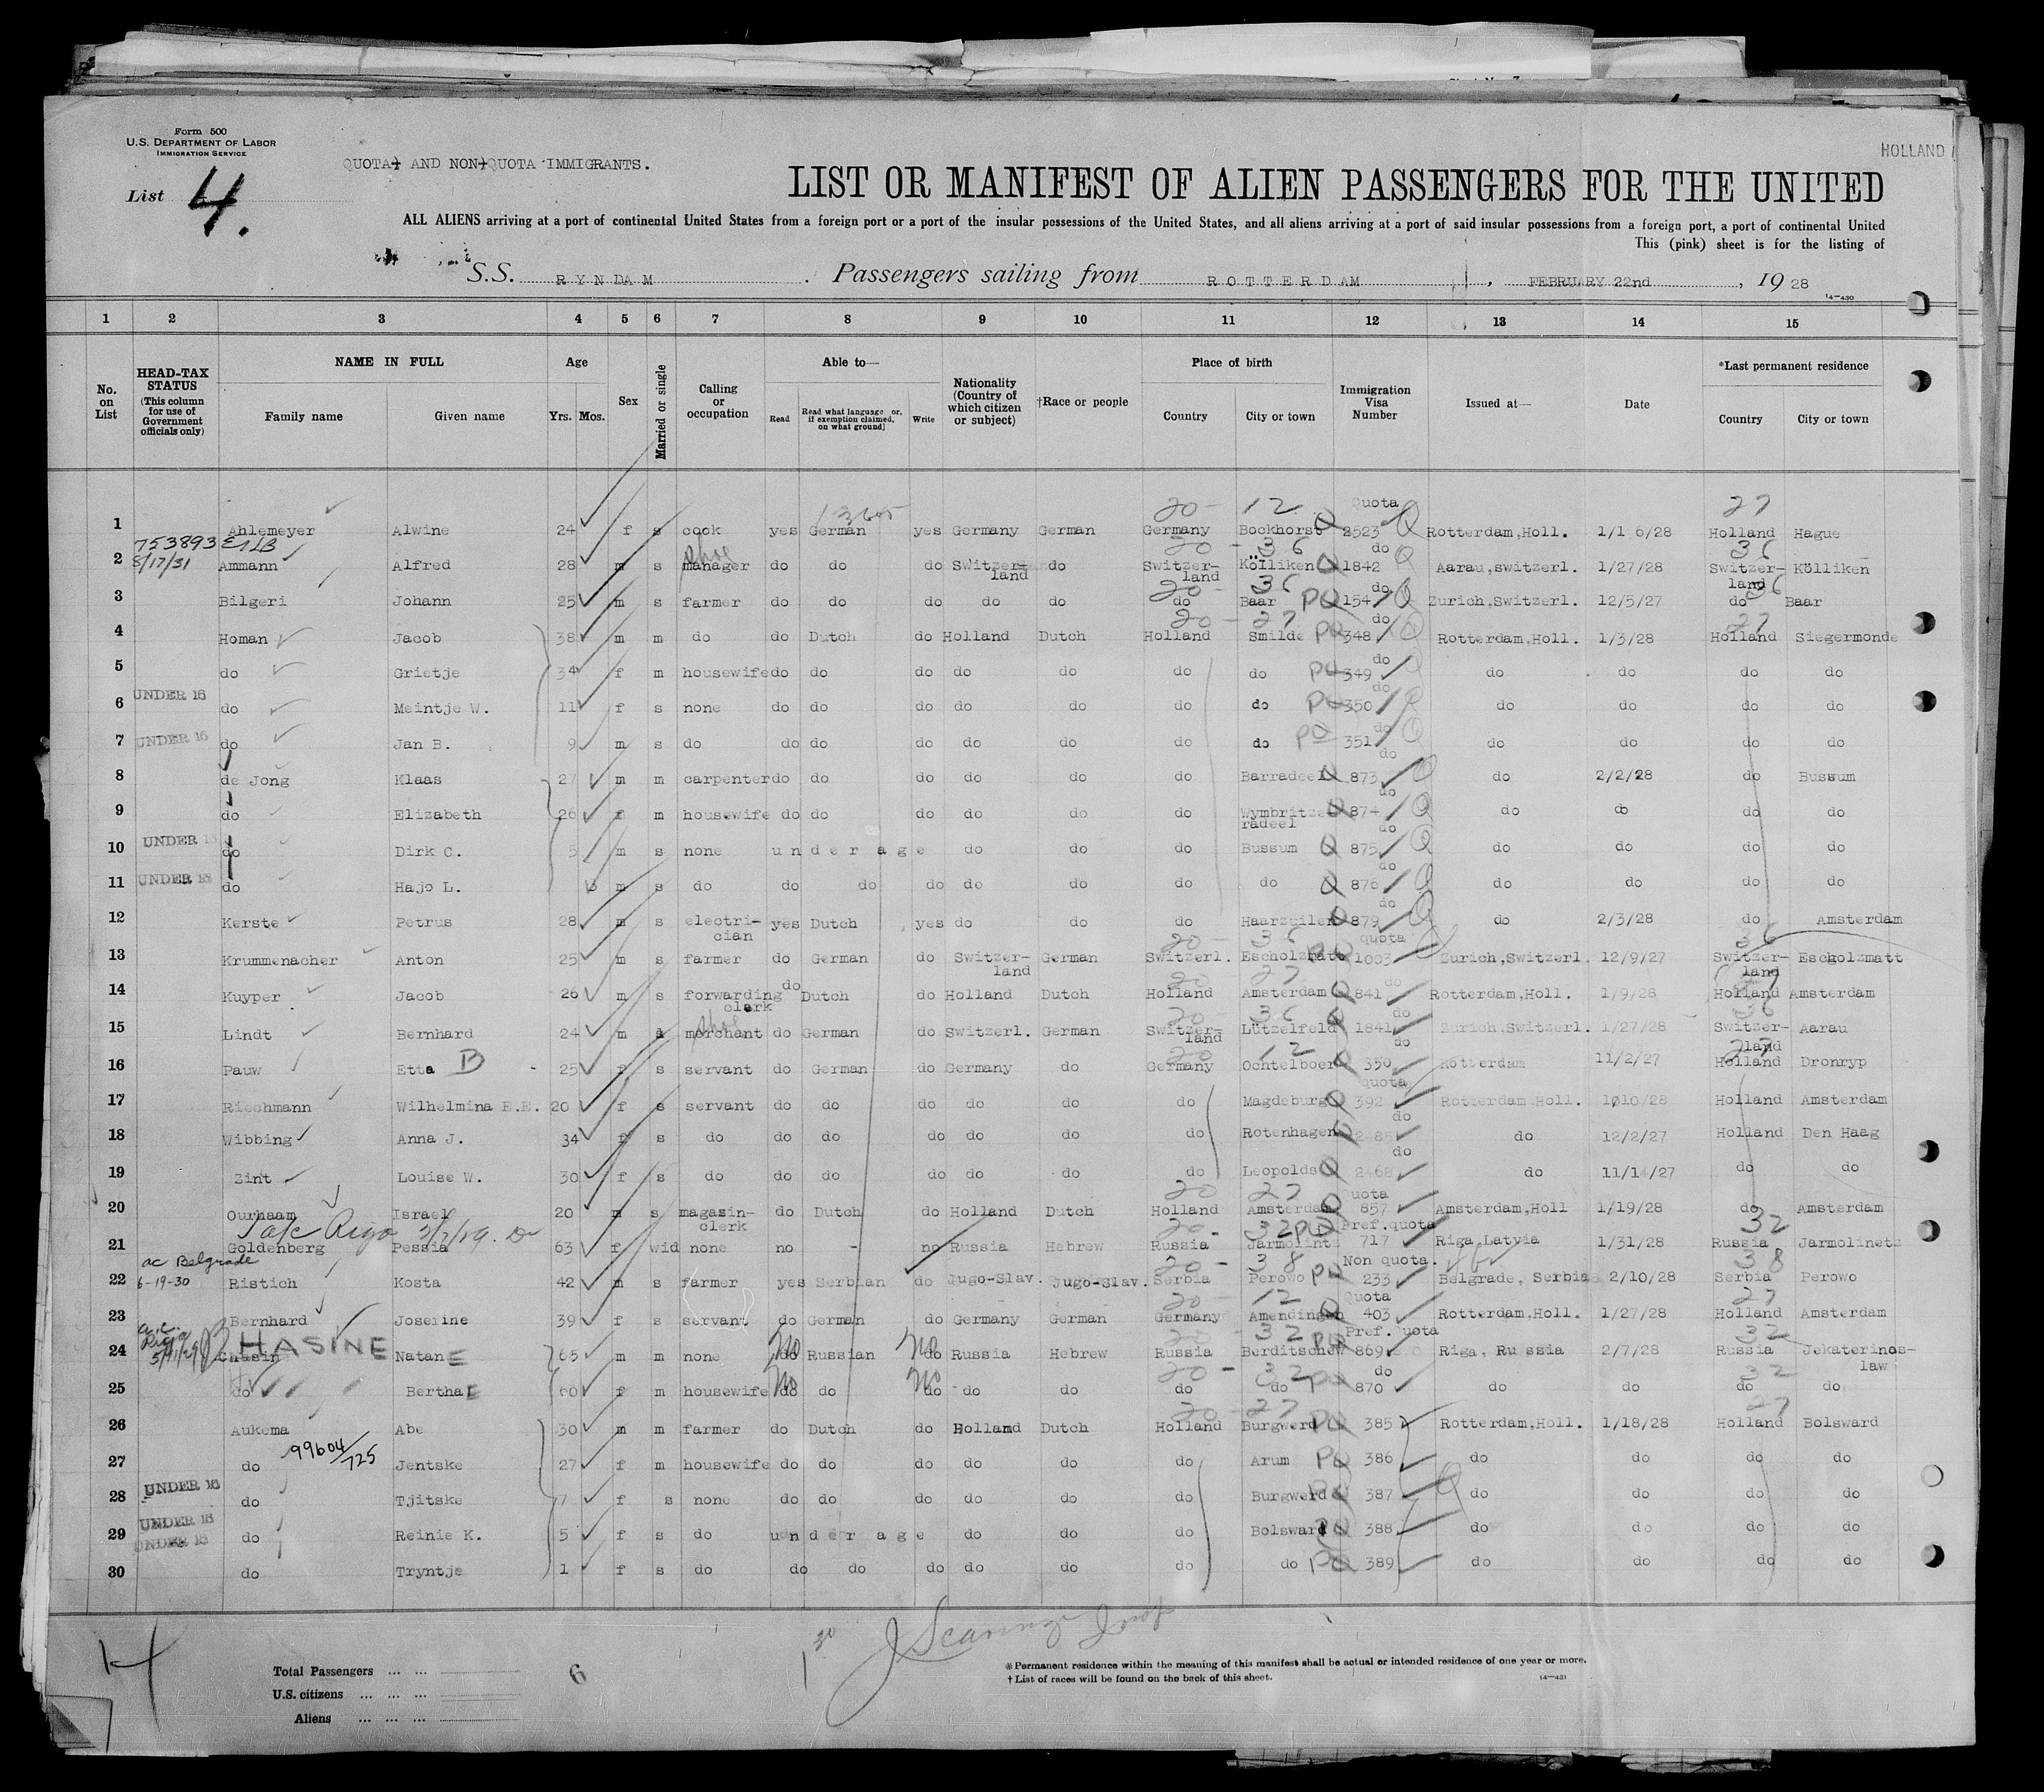 Form 500
U.S. DEPARTMENT OF LABOR
IMMIGRATION SERVICE
HOLLAND
QUOTA AND NON QUOTA IMMIGRANTS.
List 4.
LIST OR MANIFEST OF ALIEN PASSENGERS FOR THE UNITED
ALL ALIENS arriving at a port of continental United States from a foreign port or a port of the insular possessions of the United States, and all aliens arriving at a port of said insular possessions from a foreign port, a port of continental United
This (pink) sheet is for the listing of
S.S. RYNDAM. Passengers sailing from ROTTERDAM, FEBRUARY 22nd, 1928
14-430
1 2 3 4 5 6 7 8 9 10 11 12 13 14 15
No. on List
HEAD-TAX STATUS (This column for use of Government officials only)
NAME IN FULL
Family name Given name
Age
Yrs. Mos.
Sex
Married or single
Calling or occupation
Able to—
Read
Read what language or, if exemption claimed, on what ground]
Write
Nationality (Country of which citizen or subject)
†Race or people
Place of birth
Country City or town
Immigration Visa Number
Issued at—
Date
*Last permanent residence
Country City or town
20- 12 Quota 27
1 Ahlemeyer Alwine 24 f s cook yes German yes Germany German Germany Bockhorst Q 2523 Q Rotterdam,Holl. 1/1 6/28 Holland Hague
753893
8/17/31
20 - 36 do 36
2 Ammann Alfred 28 m s manager do do do Switzer-land do Switzer-land Kölliken Q 1842 Q Aarau,switzerl. 1/27/28 Switzer-land Kölliken
20- 36 do 36
3 Bilgeri Johann 25 m s farmer do do do do do do Baar PQ 154 Q Zurich,Switzerl. 12/5/27 do Baar
20 - 27 do 27
4 Homan Jacob 38 m m do do Dutch do Holland Dutch Holland Smilde PQ 348 Q Rotterdam,Holl. 1/3/28 Holland Siegermonde
do
5 do Grietje 34 f m housewife do do do do do do do PQ 349 Q do do do do
UNDER 16 do
6 do Meintje W. 11 f s none do do do do do do do PQ 350 Q do do do do
UNDER 16 do
7 do Jan B. 9 m s do do do do do do do do PQ 351 Q do do do do
do
8 de Jong Klaas 27 m m carpenter do do do do do do Barradeel Q 873 Q do 2/2/28 do Bussum
do
9 do Elizabeth 26 f m housewife do do do do do do Wymbritze radeel Q 874 Q do do do do
UNDER 16 do
10 do Dirk C. 5 m s none under age do do do Bussum Q 875 Q do do do do
UNDER 16 do
11 do Hajo L. m s do do do do do do do do Q 876 Q do do do do
do
12 Kerste Petrus 28 m s electri-cian yes Dutch yes do do do Haarzuilen Q 879 Q do 2/3/28 do Amsterdam
20 - 36 quota 36
13 Krummenacher Anton 25 m s farmer do German do Switzer-land German Switzerl. Escholzmatt PQ 1003 Zurich,Switzerl. 12/9/27 Switzer-land Escholzmatt
20 27 do
14 Kuyper Jacob 26 m s forwarding clerk do Dutch do Holland Dutch Holland Amsterdam Q 841 Rotterdam,Holl. 1/9/28 Holland Amsterdam
20- 36 do 36
15 Lindt Bernhard 24 m s merchant do German do Switzerl. German Switzer-land Lützelfeld Q 1841 Zurich,Switzerl. 1/27/28 Switzer-land Aarau
20 12 do 27
16 Pauw Etta B 25 f s servant do German do Germany do Germany Ochtelboer Q 350 Rotterdam 11/2/27 Holland Dronryp
quota
17 Riechmann Wilhelmina E.E. 20 f s servant do do do do do do Magdeburg Q 392 Rotterdam,Holl. 1/10/28 Holland Amsterdam
do
18 Wibbing Anna J. 34 f s do do do do do do do Rotenhagen Q do 12/2/27 Holland Den Haag
do
19 Zint Louise W. 30 f s do do do do do do do Leopolds Q do 11/14/27 do do
20 27 Quota
20 Ourhaam Israel 20 m s magazin-clerk do Dutch do Holland Dutch Holland Amsterdam Q 857 Amsterdam,Holl 1/19/28 do Amsterdam
Riga
20- 32 PQ Pref.quota 32
21 Goldenberg Pessia 63 f wid none no - no Russia Hebrew Russia Jarmolints 717 Riga,Latvia 1/31/28 Russia Jarmolinetz
ac Belgrade
6-19-30
20- 38 Non quota. 38
22 Ristich Kosta 42 m s farmer yes Serbian do Jugo-Slav. Jugo-Slav. Serbia Perowo PQ 233 Belgrade, Serbia 2/10/28 Serbia Perowo
20- 12 Quota 27
23 Bernhard Josefine 39 f s servant do German do Germany German Germany Amendingen Q 403 Rotterdam,Holl. 1/27/28 Holland Amsterdam
a.c. Riga
HASINE
20 - 32 PQ Pref.Quota 32
24 Chasin NatanE 65 m m none No do Russian No do Russia Hebrew Russia Berditschew 869 Riga, Russia 2/7/28 Russia Jekaterinos-law
20 - 32 do 32
25 do BerthaE 60 f m housewife No do do No do do do do do PQ 870 do do do do
20 - 27 27
26 Aukema Abe 30 m m farmer do Dutch do Holland Dutch Holland Burgwerd PQ 385 Rotterdam,Holl. 1/18/28 Holland Bolsward
99604/725
27 do Jentske 27 f m housewife do do do do do do Arum PQ 386 do do do do
UNDER 16
28 do Tjitske 7 f s none do do do do do do Burgwerd PQ 387 Q do do do do
UNDER 16
29 do Reinie K. 5 f s do under age do do do Bolsward PQ 388 do do do do
UNDER 16
30 do Tryntje 1 f s do do do do do do do do PQ 389 do do do do
Total Passengers ... ...
U.S. citizens ... ... ...
Aliens ... ... ...
6
*Permanent residence within the meaning of this manifest shall be actual or intended residence of one year or more.
†List of races will be found on the back of this sheet.
14-431